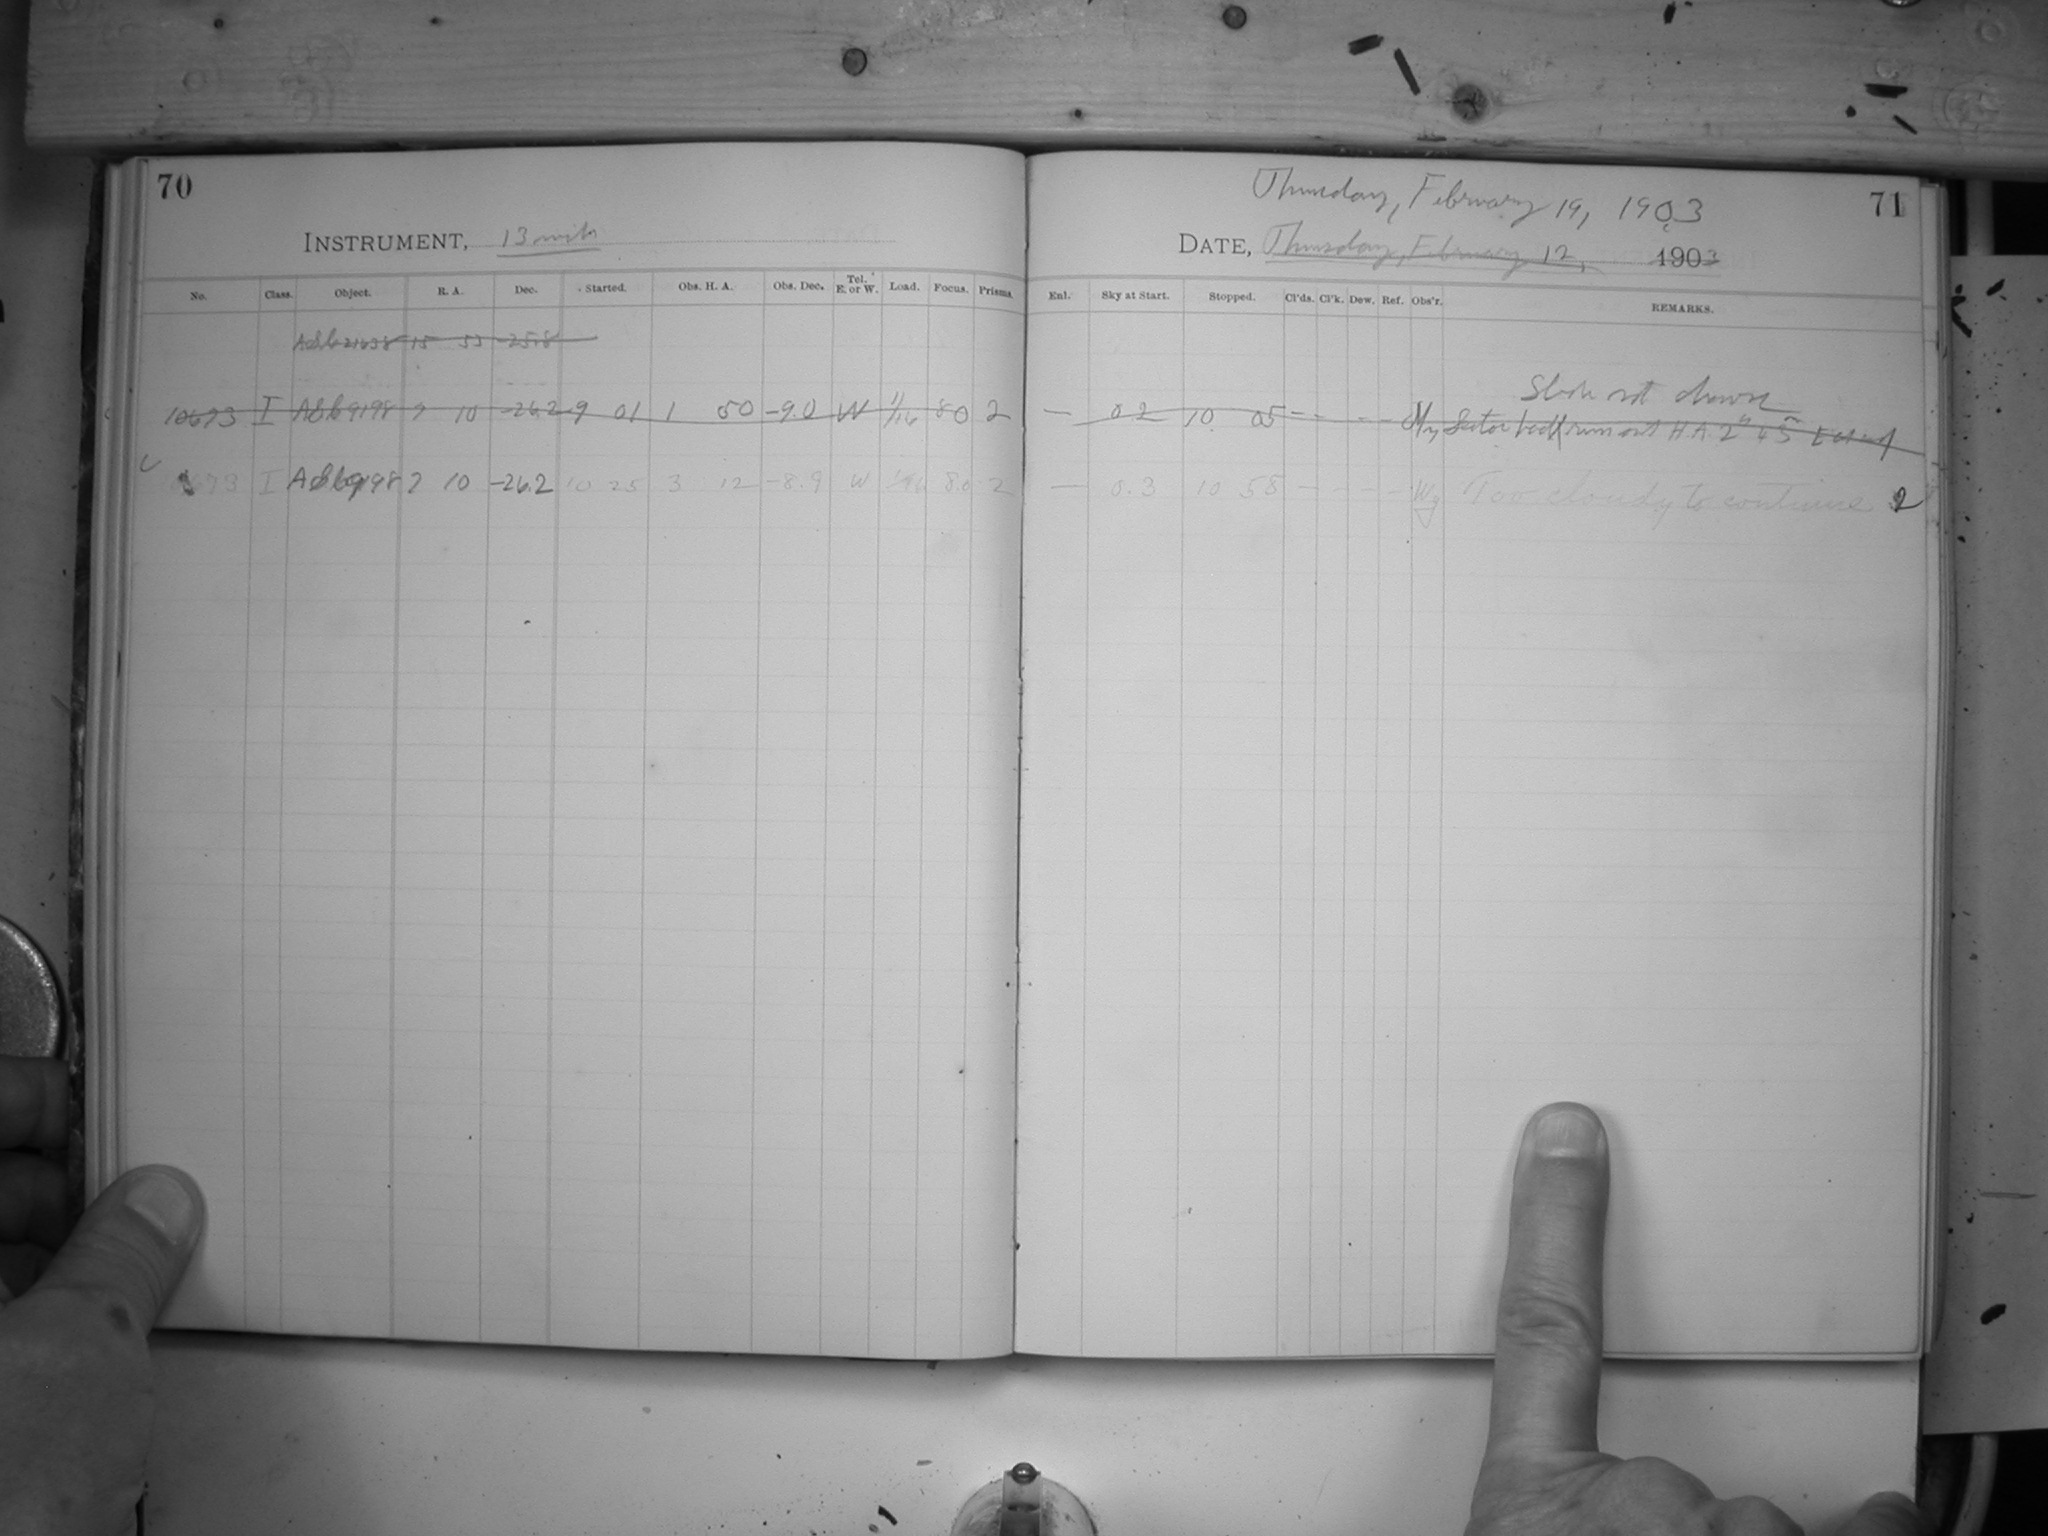 70
INSTRUMENT, 13 inch
No. Class. Object. R. A. Dec. Started. Obs. H. A. Obs. Dec. Tel. E. or W. Load. Focus. Prisms.
15 53 -25.8
10673 I 9198 7 10 -26.2 9 01 1 50 -9.0 W 1/16 8.0 2
673 I 9198 7 10 -26.2 10 25 3 12 -8.9 W 1/16 8.0 2
Thursday, February 19, 1903
71
DATE, Thursday, February 12, 1903
Enl. Sky at Start. Stopped. Cl'ds. Cl'k. Dew. Ref. Obs'r. REMARKS.
not drawn
— 0.2 10 05 - - - - H.A. 2h 45
— 0.3 10 58 - - - - Wy Too cloudy to continue 2